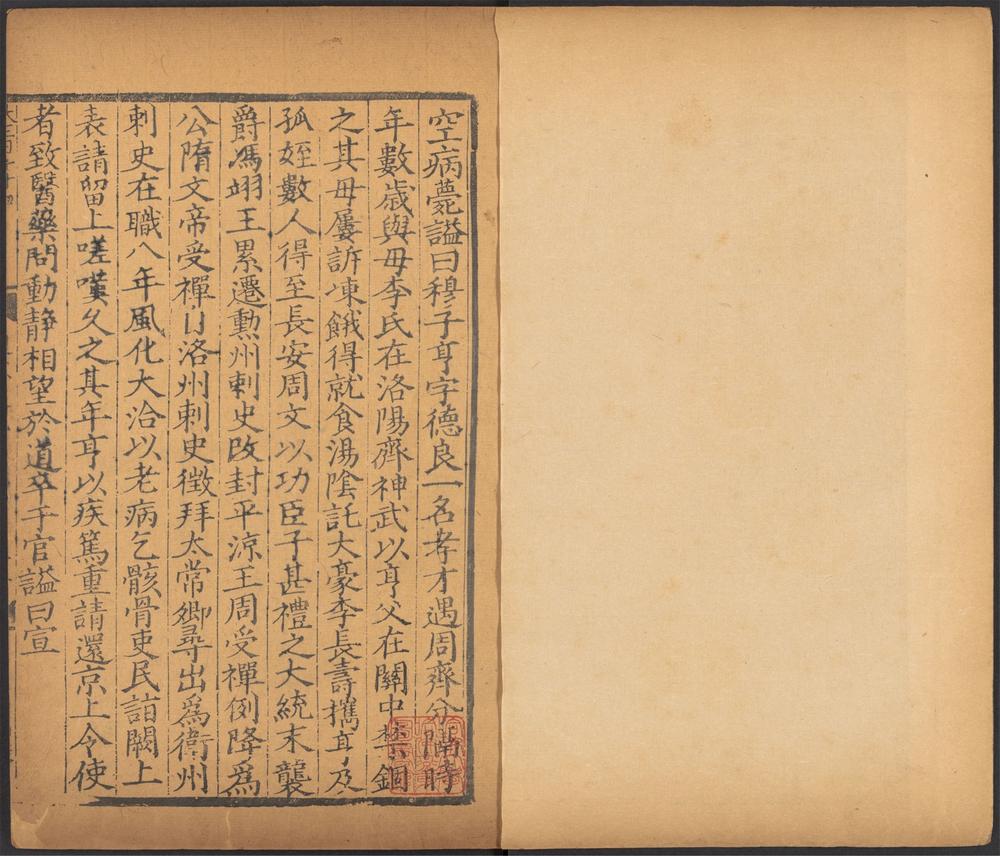 空病薨諡曰穆子亨字德良一名孝才遇周齊分隔時
年數歲與母李氏在洛陽齊神武以亨父在關中禁錮
之其母屢訴凍餓得就食湯陰託大豪李長壽攜亨及
孤姪數人得至長安周文以功臣子甚禮之大統末襲
爵馮翊王累遷勲州刺史改封平涼王周受禪例降爲
公隋文帝受禪自洛州刺史徵拜太常卿尋出爲衛州
刺史在職八年風化大洽以老病乞骸骨吏民詣闕上
表請留上嗟嘆久之其年亨以疾篤重請還京上令使
者致醫藥問動静相望於道卒于官諡曰宣